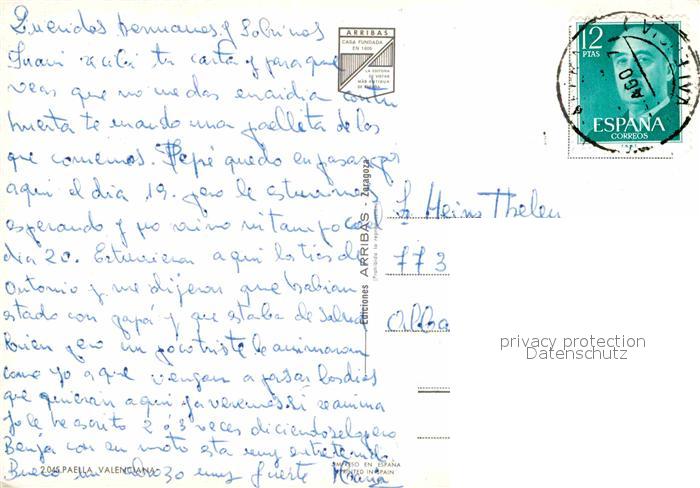 Queridos hermanos y Sobrinos
Juani recibi tu carta y para que
veas que no me das envidia con tu
huerta te mando una paelleta de las
que comemos. Pepe quedo en pasar por
aqui el dia 19. pero le estuvimos
esperando y no vino ni tampoco el
dia 20. Estuvieron aqui los tios de
Antonio y me dijeron que habian
estado con papá y que estaba de salud
bien pero un poco triste le animaron
como yo a que vengan a pasar los dias
que quieran aqui ya veremos si se anima
yo le he escrito 2 ó 3 veces diciendoselo pero
Benja con su moto esta muy entretenido
Bueno un abrazo muy fuerte
2.045 PAELLA VALENCIANA
IMPRESO EN ESPAÑA
PRINTED IN SPAIN
ARRIBAS
CASA FUNDADA
EN 1905
LA EDITORA
DE VISTAS
MAS ANTIGUA
DE ESPAÑA
Ediciones ARRIBAS - Zaragoza
12
PTAS
ESPAÑA
CORREOS
Heins Thelen
773
Alba
privacy protection
Datenschutz